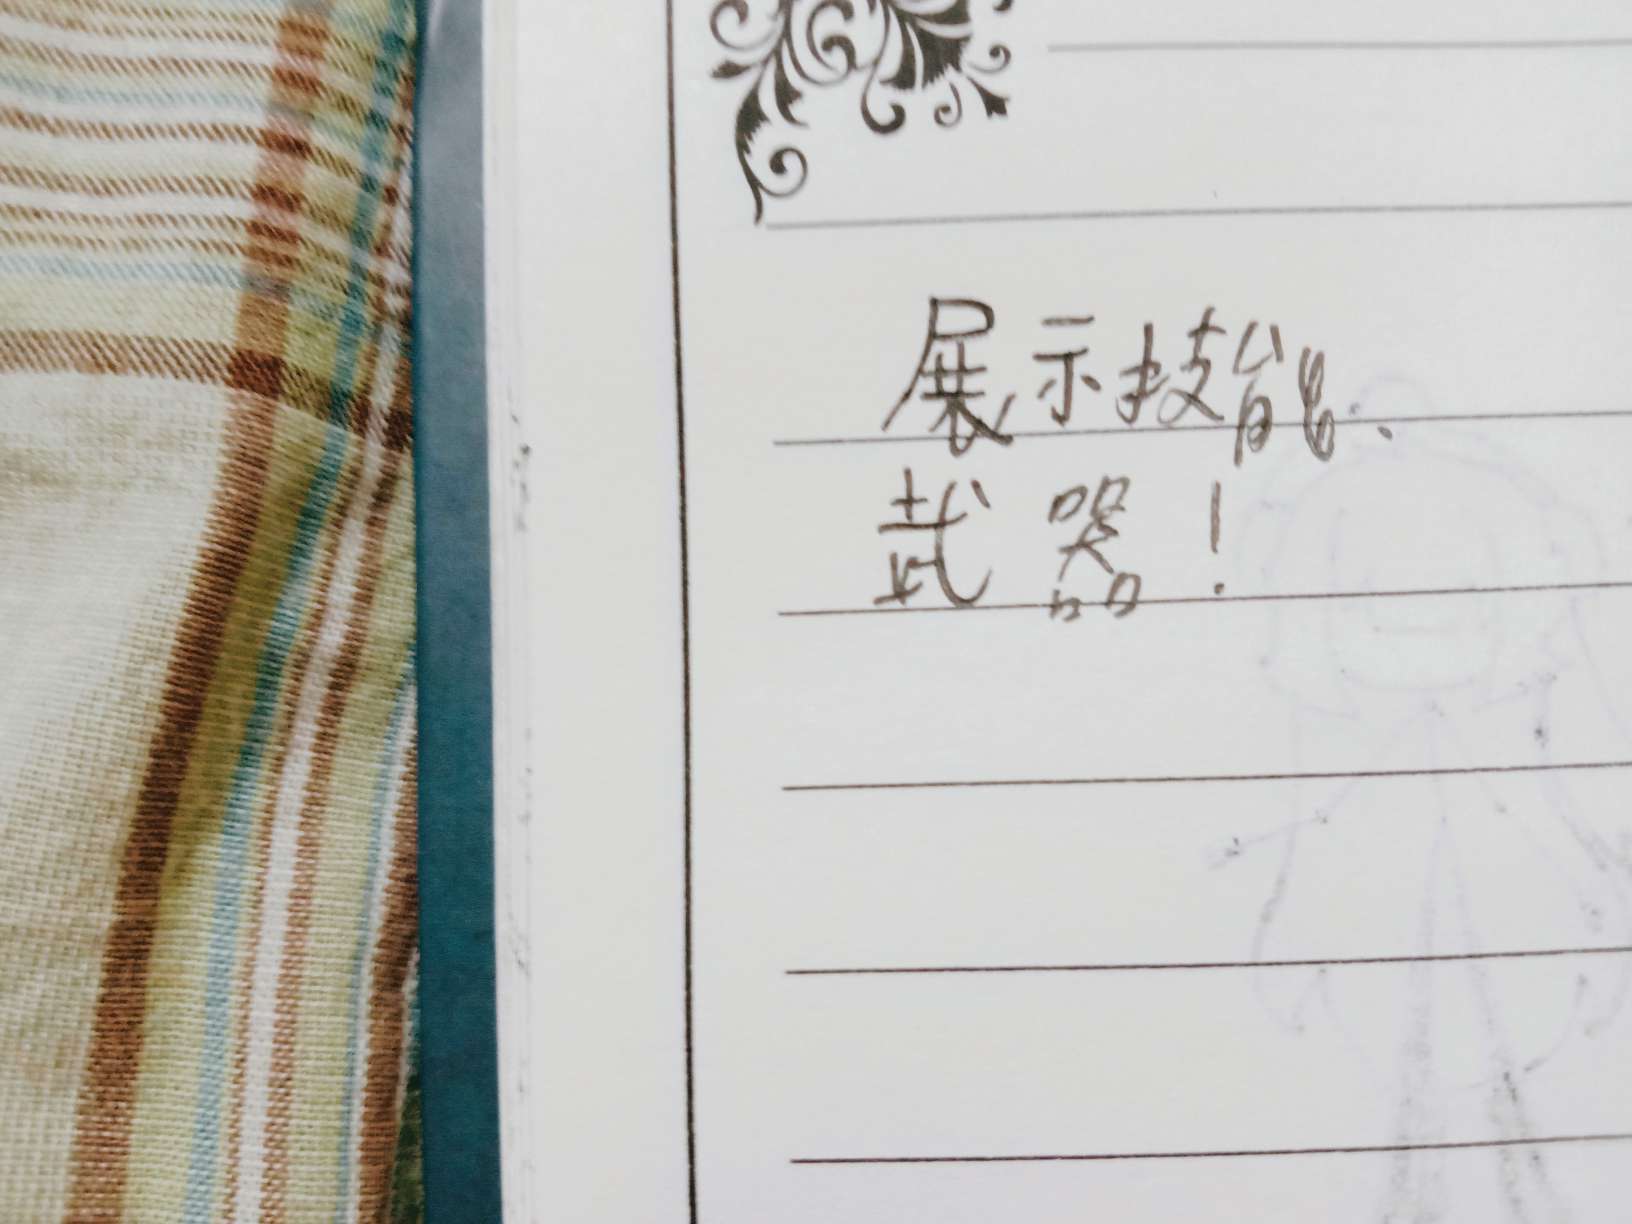 展示技能.
武器!